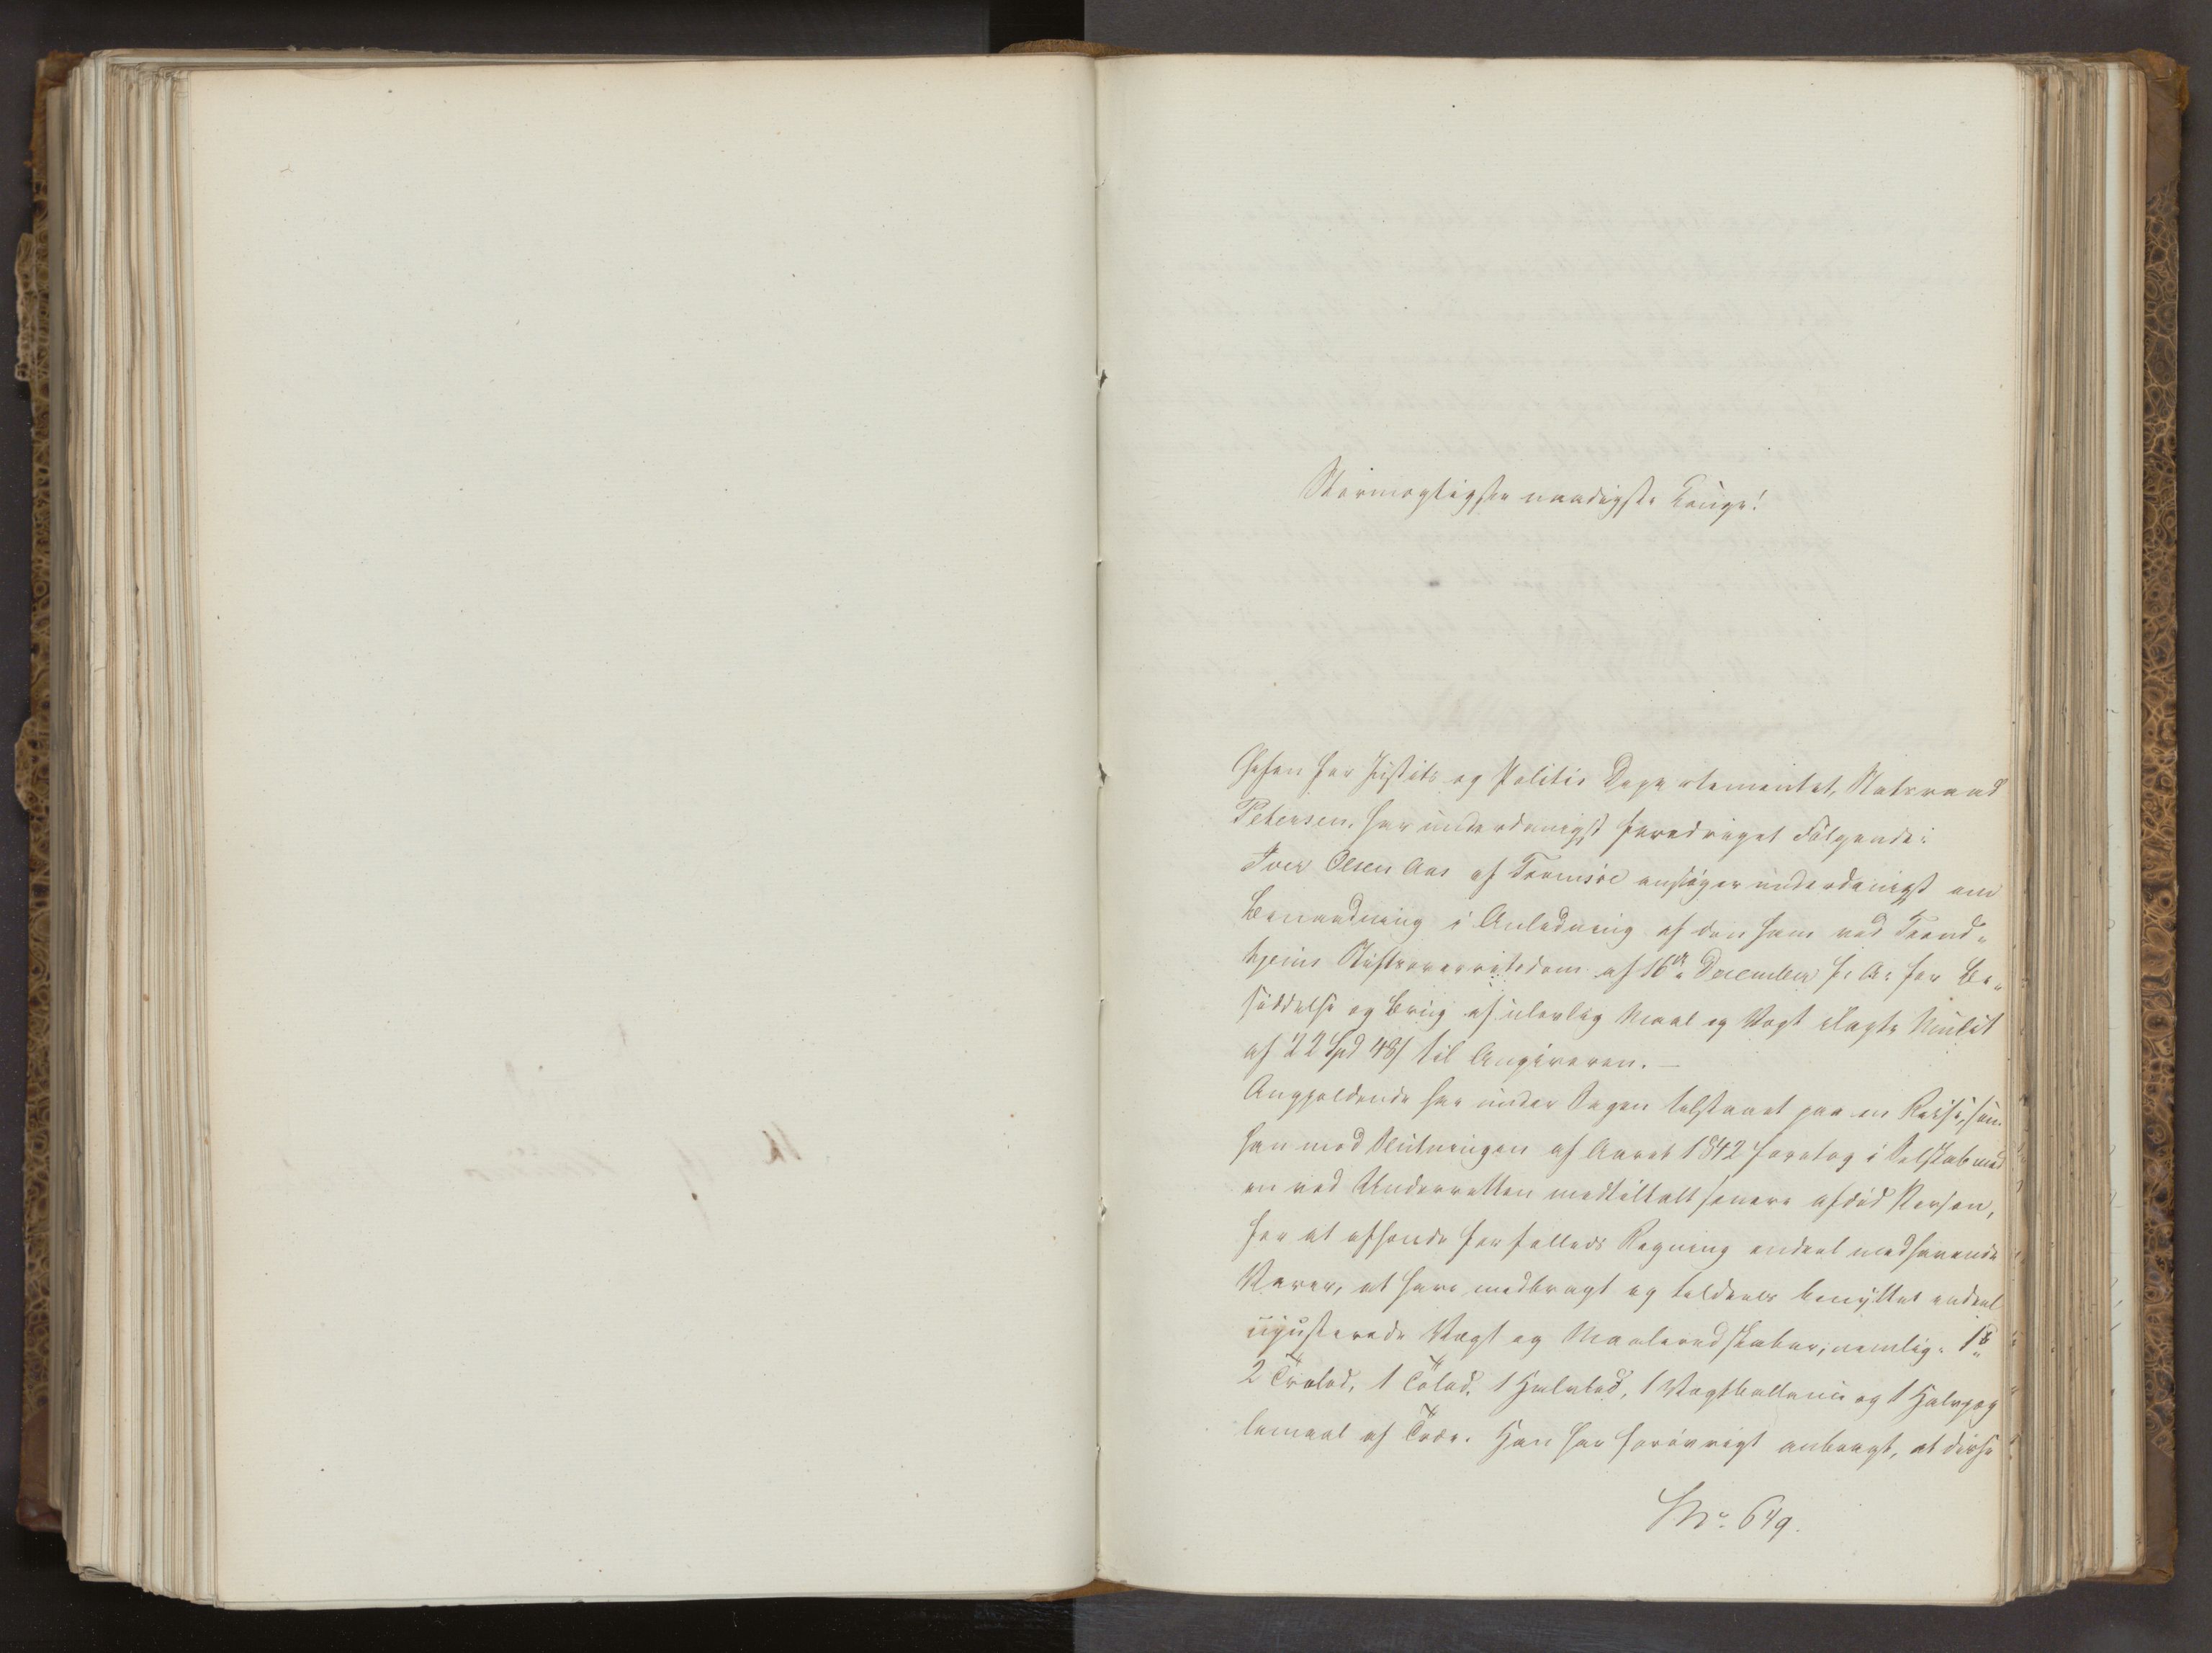 Stormægtigste naadigste Konge!
Chefen for Justits og Politie Departementet, Statsraad
Petersen, har underdanigst foredraget Følgende:
Iver Olsen Aas af Tromsøe ansøger underdanigst om
Benaadning i Anledning af den ham ved Trond„
hjems Stiftsoverretsdom af 16de December f. A. for Be„
siddelse og Brug af ulovlig Maal og Vægt ilagte Mulct
af 22 Spd 48 ß til Angiveren. —
Angjeldende har under Sagen tilstaaet paa en Reise, som
han mod Slutningen af Aaret 1842 foretog i Selskab med
en ved Underretten medtiltalt senere afdød Person,
for at afhænde for fælleds Regning endeel medhavende
Varer, at have medbragt og tildeels benyttet endeel
ujusterede Vægt og Maaleredskaber, nemlig: 1 ℔
2 Trælod, 1 Tolod, 1 Halvlod, 1 Vægtballance og 1 Halvpæg
lemaal af Træe. Han har forøvrigt anbragt, at disse
No. 649.